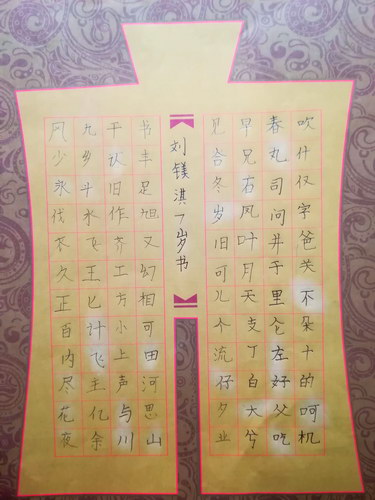 吹什仅字爸关不朵十的呵机
春丸司问井于里仑左好父吃
早兄右风叶月天支丁白大兮
见合冬岁旧可儿个流仔夕业
刘镁淇7岁书
书丰足旭又幻相可田河思山
干以旧作齐工方小上声与川
九乡斗水飞王匕计飞主亿余
风少永伐衣久正百内尽花夜